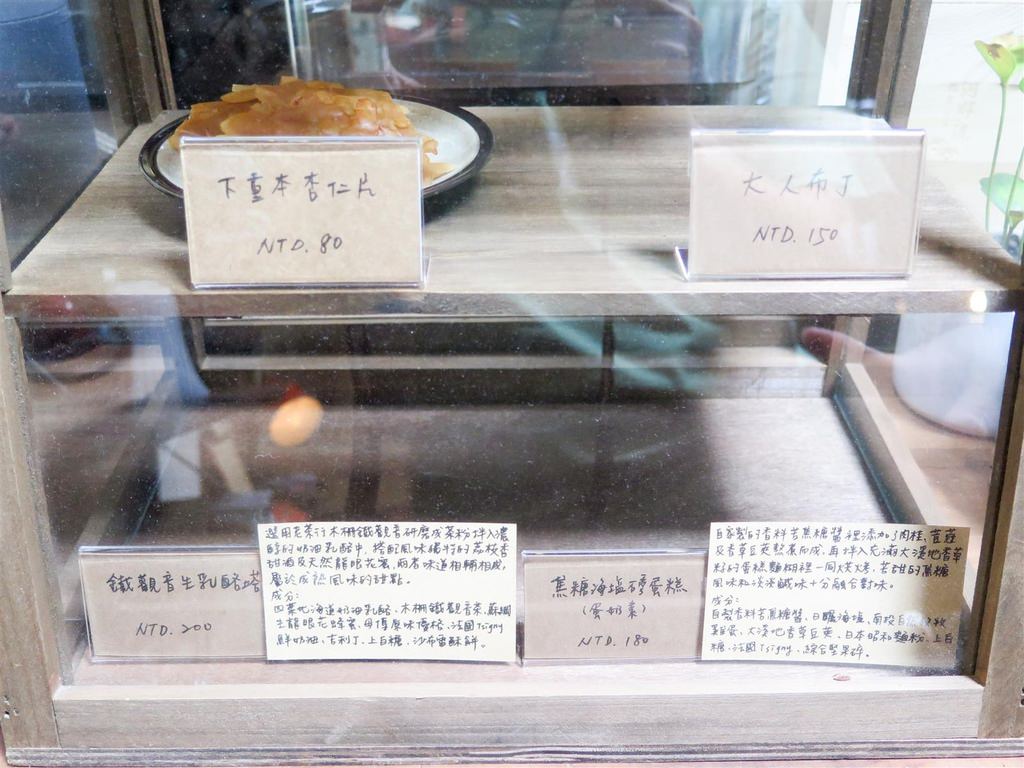 下重本杏仁片
NTD. 80
大人布丁
NTD. 150
鐵觀音生乳酪塔
NTD. 200
選用老茶行木柵鐵觀音研磨成茶粉拌入濃
醇的奶油乳酪中,搭配風味獨特的荔枝香
甜酒及天然龍眼花蜜,兩者味道相輔相成,
屬於成熟風味的甜點。
成分:
四葉北海道奶油乳酪、木柵鐵觀音茶、
生龍眼花蜂蜜、法國Isigny
鮮奶油、吉利丁、上白糖、沙布蕾酥餅。
焦糖海塩磅蛋糕
(蛋奶素)
NTD. 180
自家製的香料苦焦糖醬裡添加了肉桂、荳蔻
及香草豆莢熬煮而成,再拌入充滿大溪地香草
籽的蛋糕麵糊裡一同烘烤,苦甜的焦糖
風味和淡淡鹹味十分融合對味。
成分:
自製香料苦焦糖醬、日曬海塩、南投
雞蛋、大溪地香草豆莢、日本昭和麵粉、上白
糖、法國Isigny、綜合堅果碎。